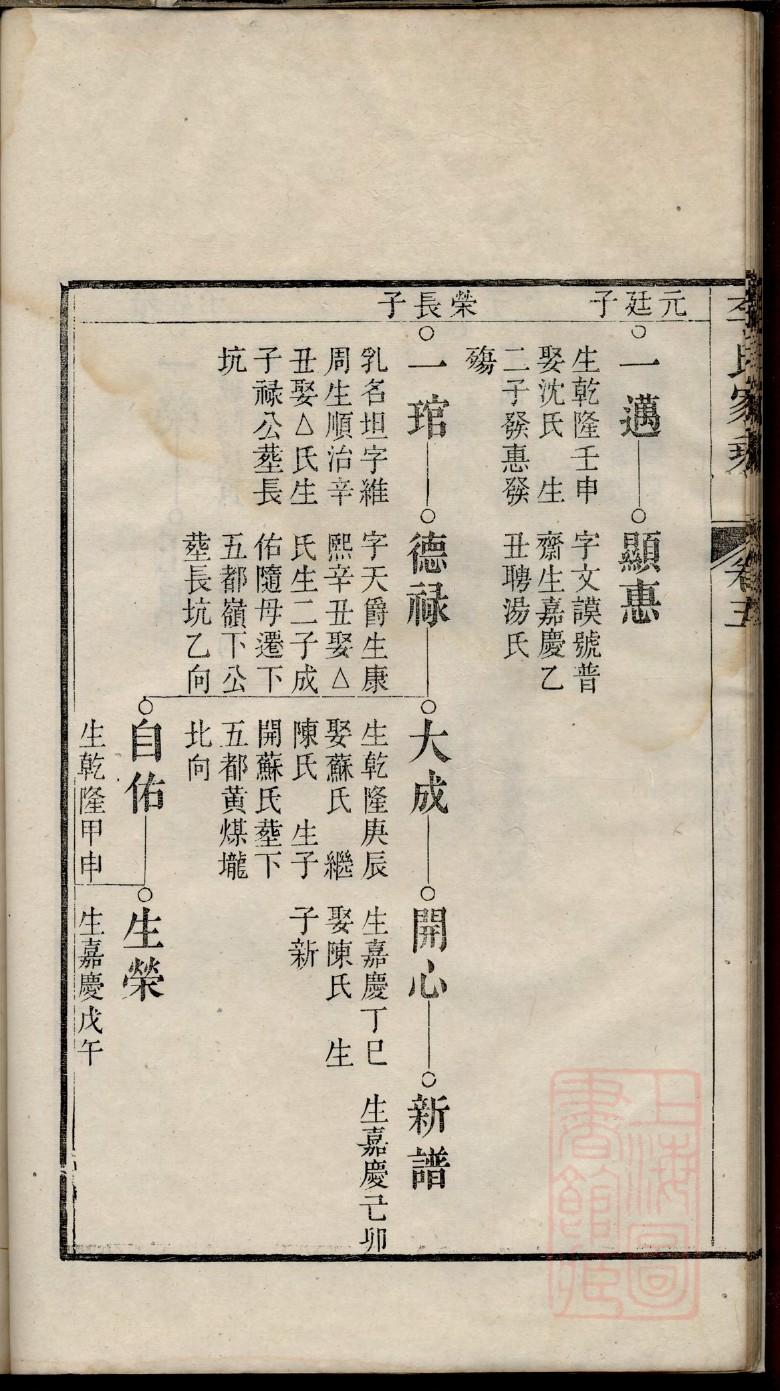 李氏家乘
卷五
元廷子
一邁
生乾隆壬申
娶沈氏 生
二子發惠發
殤
顯惠
字文謨號普
齋生嘉慶乙
丑聘湯氏
榮長子
一琯
乳名坦字維
周生順治辛
丑娶△氏生
子祿公塟長
坑
德祿
字天爵生康
熙辛丑娶△
氏生二子成
佑隨母遷下
五都嶺下公
塟長坑乙向
大成
生乾隆庚辰
娶蘇氏 繼
陳氏 生子
開蘇氏塟下
五都黃煤壠
北向
開心
生嘉慶丁巳
娶陳氏 生
子新
新譜
生嘉慶己卯
自佑
生乾隆甲申
生榮
生嘉慶戊午
上海圖
書館藏